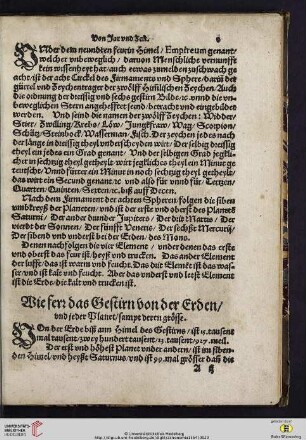 Von Jar vnd Zeit. 6
Nber dem neundten feurin Himel / Empireum genant /
welcher vnbeweglich / daruon Menschliche vernunfft
kein wissenheyt hat / auch etwas zumelden zuschwach ge
acht / ist der acht Circkel des Firmaments vnd Sphere / darin̄ der
gürtel vnd Zeychentrager der zwölff himlischen Zeychen. Auch
die ordnung der dreissig vnd sechs gestirn Bilde / ꝛc. vnnd die vn-
beweglichen Stern angehefft seind / betracht vnd eingebildet
werden. Vnd seind die namen der zwölff Zeychen: Widder /
Stier / Zwilling / Krebs / Löw / Jungkfraw / Wag / Scorpion /
Schütz / Steinbock / Wasserman / Fisch. Der zeychen jedes nach
der länge in dreissig theyl vnderscheyden wirt / Der selbig dreissig
theyl ein jedes ein Grad genant. Vnd der selbigen Grad jeglich-
er in sechtzig theyl getheylt / wirt jegkliches theyl ein Minut ge-
teutsche / Vnd fürter ein Minut in noch sechtzig auch getheylt /
das wirt ein Secund genant / ꝛc. vnd also für vnd für / Tertzen /
Quarten, Quinten, Sexten / ꝛc. biß auff Decem.
Nach dem Firmament der achten Spheren folgen die siben
vmbkreyß der Planeten / vnd ist der erst vnd oberst des Planet
Saturni / Der ander dunder Jupiters / Der dritt Martis / Der
vierdt der Sonnen / Der fünfft Veneris / Der sechßte Mercurij /
Der sibend vnd vnderst bei der Erden / des Mons.
Denen nach folgen die vier Element / vnder denen das erste
vnd oberst das feur ist / heyß vnd trucken. Das ander Element
der lufft / das ist warm vnd feucht. Das drit Element ist das was-
ser / vnd ist kalt vnd feucht. Aber das vnderst vnd letst Element
ist die Erde / die kalt vnd trucken ist.
Wie ferr das Gestirn von der Erden /
vnd jeder Planet / sampt deren grösse.
Von der Erde biß zum Himel des Gestirns / ist 15. tausent
mal tausent / zwey hundert tausent / 13. tausent / 917. meil.
Der erst vnd höhest Planet vnder andern / ist im siben-
den Himel / vnd heyßt Saturnus / vnd ist 91. mal grösser dañ die
A 6